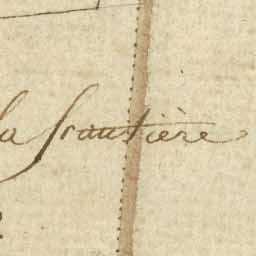 la Frautière